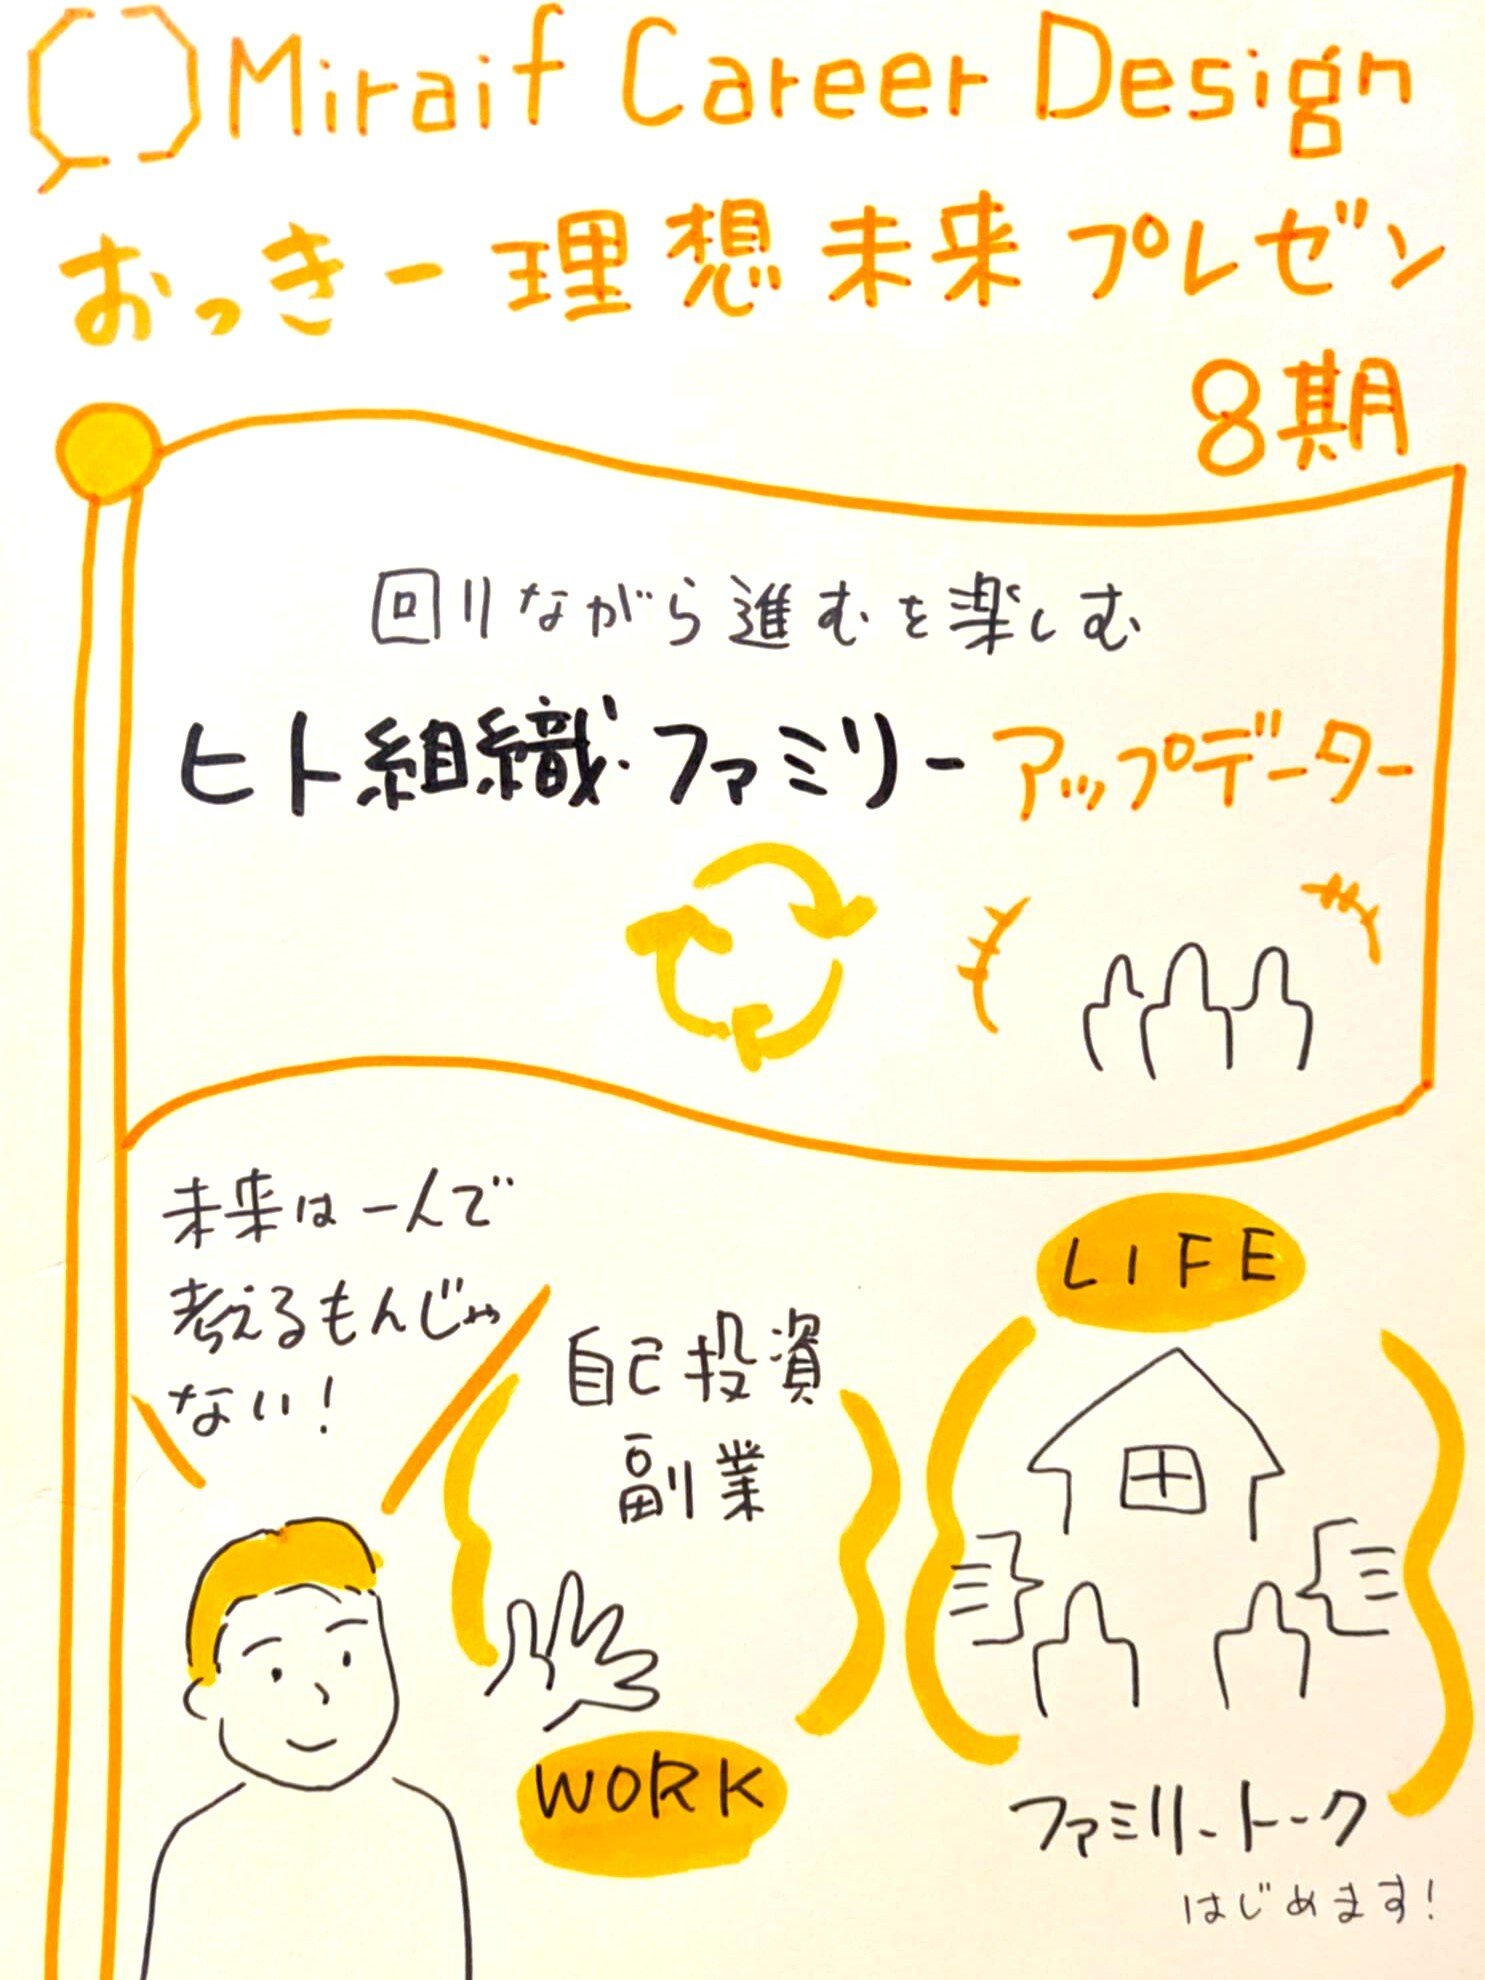 Miraif Career Design
おっきー理想未来プレゼン
8期
回りながら進むを楽しむ
ヒト組織・ファミリーアップデーター
未来は一人で
考えるもんじゃ
ない!
自己投資
副業
WORK
LIFE
ファミリートーク
はじめます!